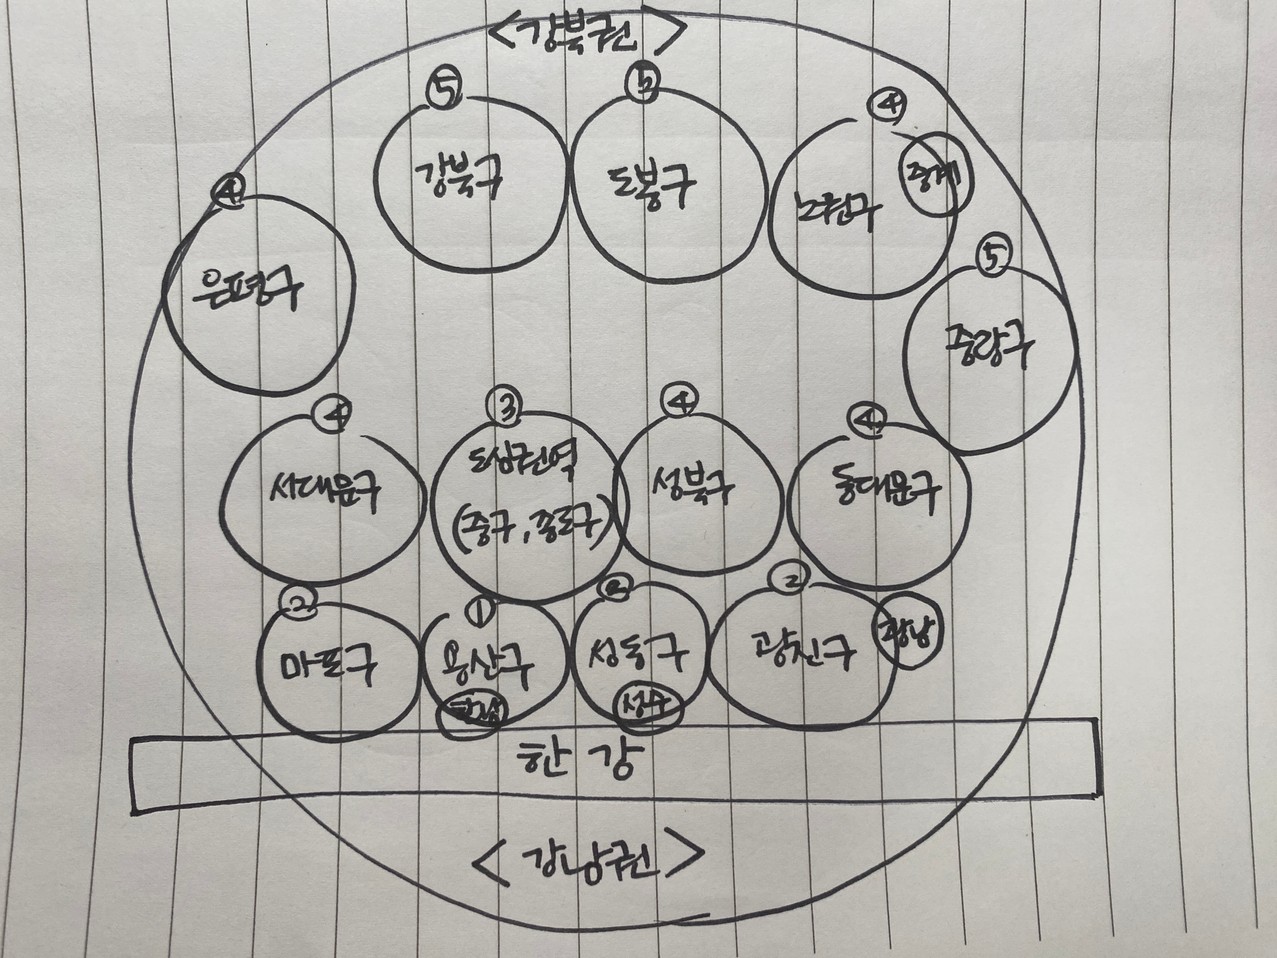 <강북권>
⑤
⑤
④
강북구
도봉구
노원구
중계
④
은평구
⑤
중랑구
④
서대문구
③
도심권역
(중구, 종로구)
④
성북구
④
동대문구
②
마포구
①
용산구
한남
②
성동구
성수
②
광진구
광남
한강
<강남권>